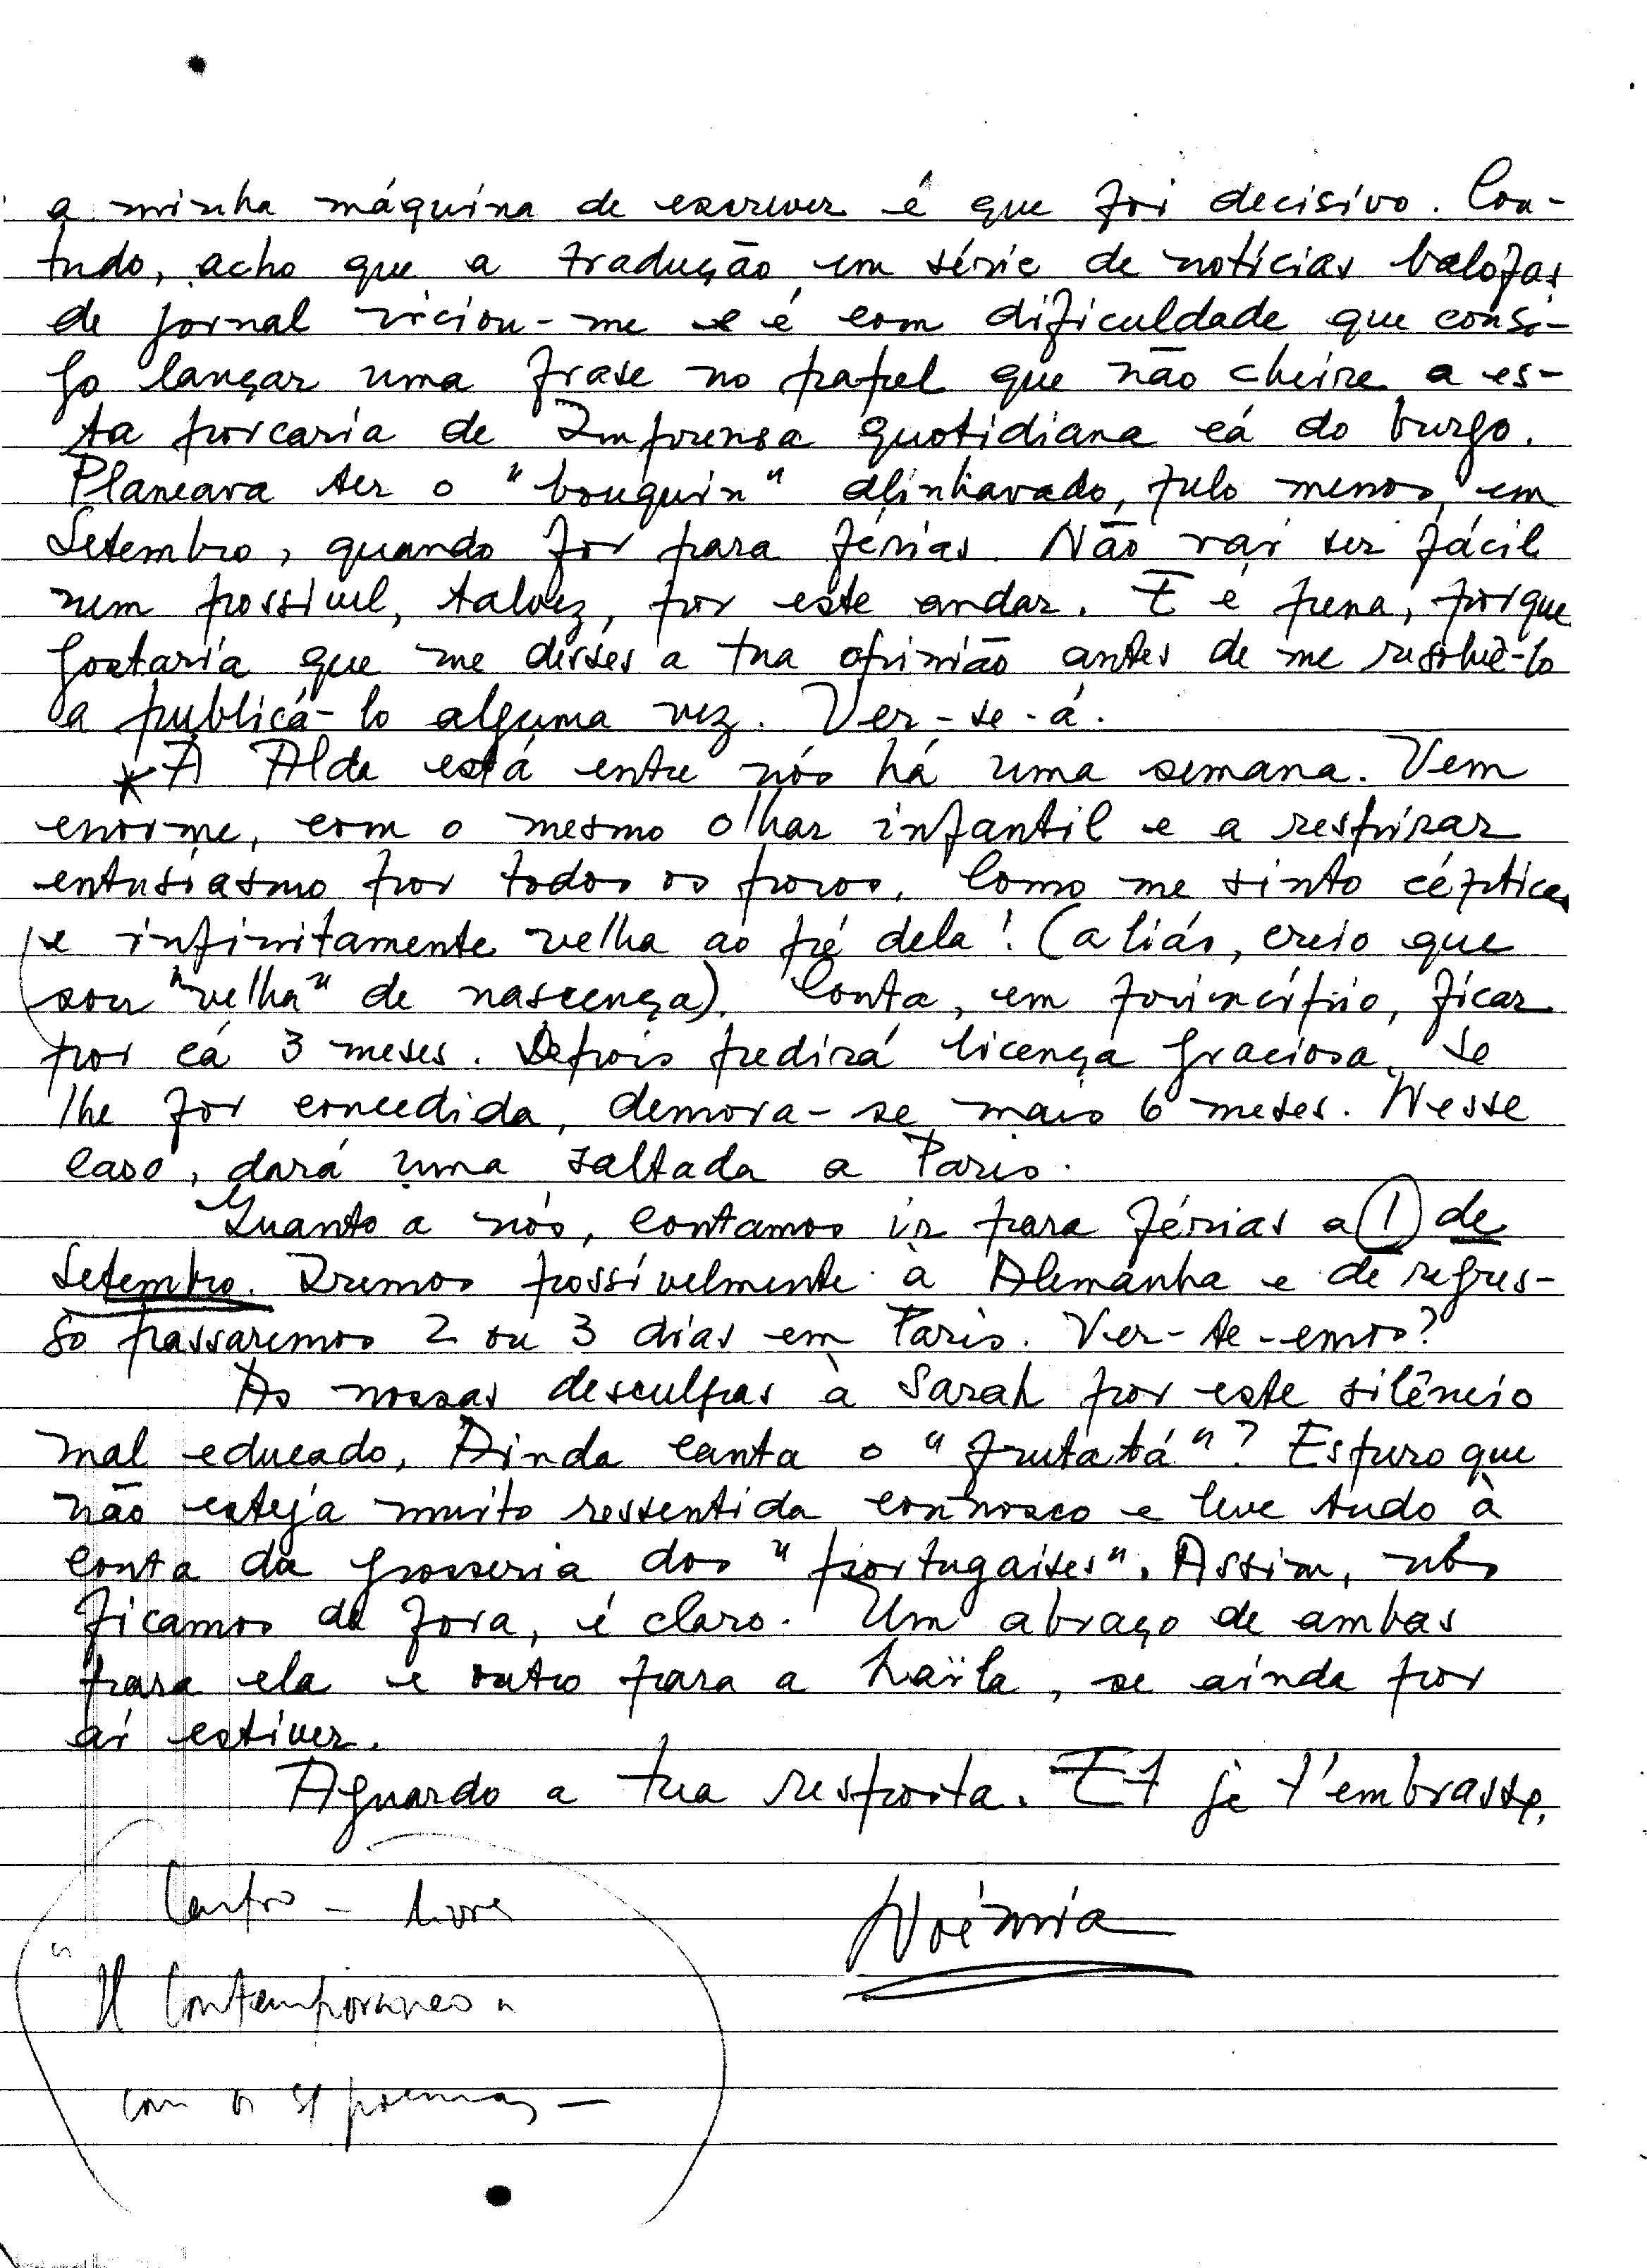 a minha máquina de escrever é que foi decisivo. Con-
tudo, acho que a tradução em série de notícias balofas
de jornal viciou-me e é com dificuldade que consi-
go lançar uma frase no papel que não cheire a es-
ta porcaria de Imprensa quotidiana cá do burgo.
Planeara ter o "bouquin" alinhavado, pelo menos, em
Setembro, quando for para férias. Não vai ser fácil
nem possível, talvez, por este andar. E é pena, porque
gostaria que me disses a tua opinião antes de me resolvê-lo
a publicá-lo alguma vez. Ver-se-á.
* A Alda está entre nós há uma semana. Vem
enorme, com o mesmo olhar infantil e a respirar
entusiasmo por todos os poros. Como me sinto céptica
e infinitamente velha ao pé dela! (aliás, creio que
sou "velha" de nascença). Conta, em princípio, ficar
por cá 3 meses. Depois pedirá licença graciosa. Se
lhe for concedida, demora-se mais 6 meses. Nesse
caso, dará uma saltada a Paris.
Quanto a nós, contamos ir para férias a 1 de
Setembro. Iremos possívelmente à Alemanha e de regres-
so passaremos 2 ou 3 dias em Paris. Ver-te-emos?
As nossas desculpas à Sarah por este silêncio
mal educado. Ainda canta o "frutatá"? Espero que
não esteja muito ressentida connosco e leve tudo à
conta da grosseria dos "portugaises". Assim, nós
ficamos de fora, é claro. Um abraço de ambas
para ela e outro para a Laïla, se ainda por
aí estiver.
Aguardo a tua resposta. Et je t'embrasse,
Noémia
"Contemporaneo"
com os poemas -